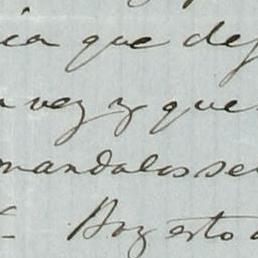 ia que dej
vez y que
mandalosse
Boy esto